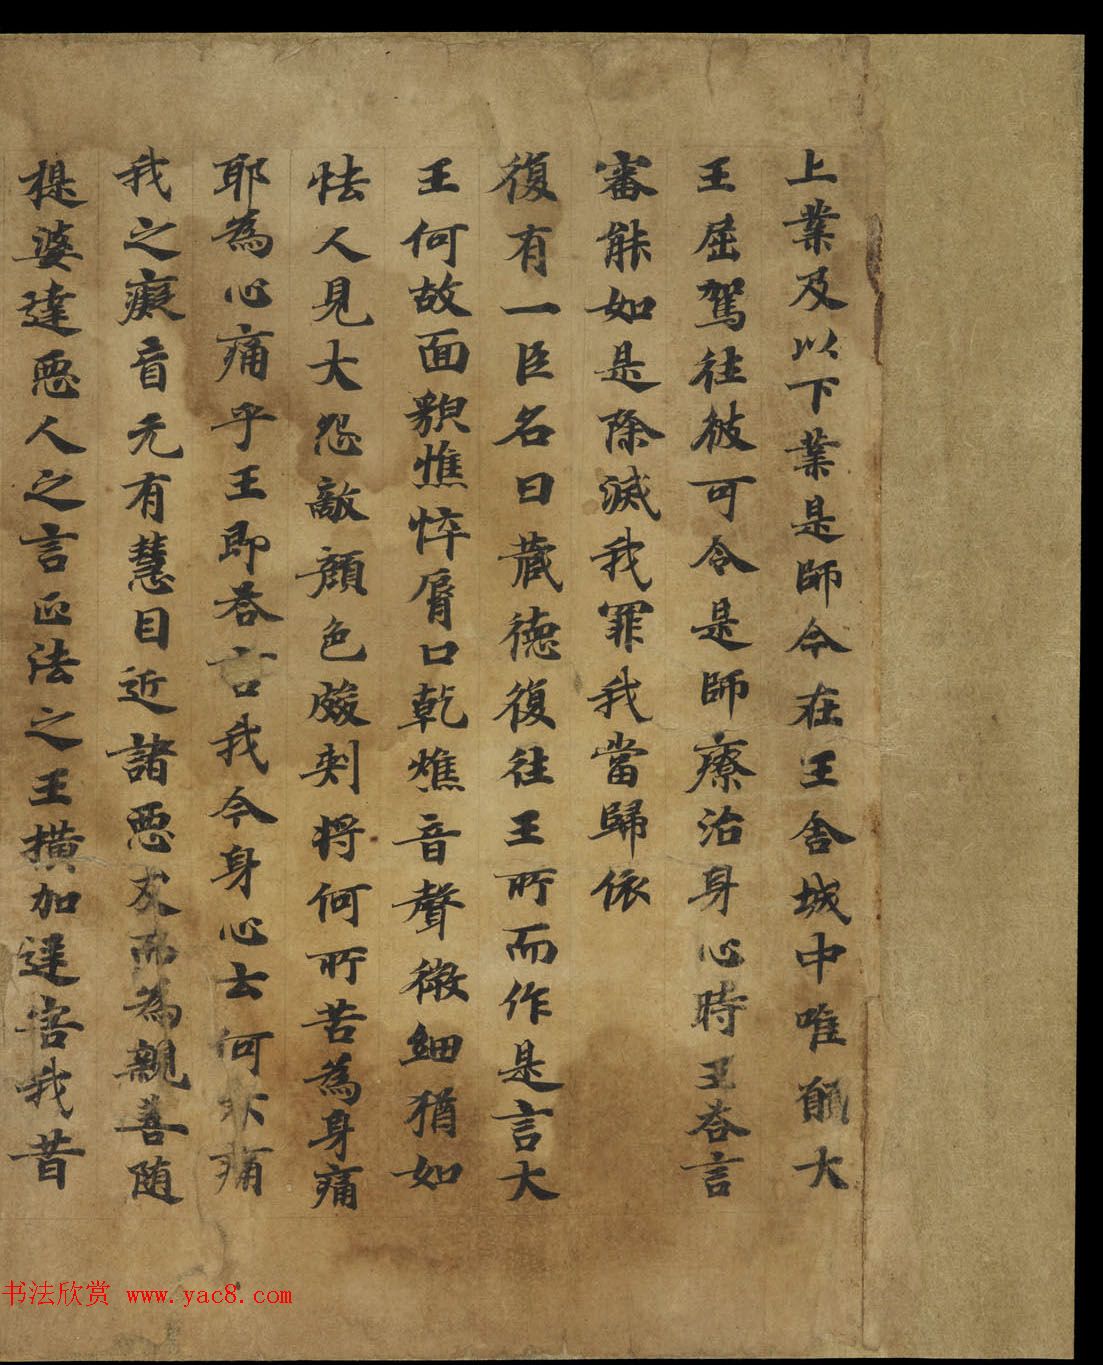 上業及以下業是師今在王舍城中唯願大
王屈駕往彼可令是師療治身心時王荅言
審能如是除滅我罪我當歸依
復有一臣名曰藏德復往王所而作是言大
王何故面貌憔悴脣口乾燋音聲微細猶如
怯人見大怨敵顏色皴剥将何所苦為身痛
耶為心痛乎王即荅言我今身心云何不痛
我之癡盲无有慧目近諸惡友而為親善随
提婆達惡人之言正法之王横加逆害我昔
书法欣赏 www.yac8.com